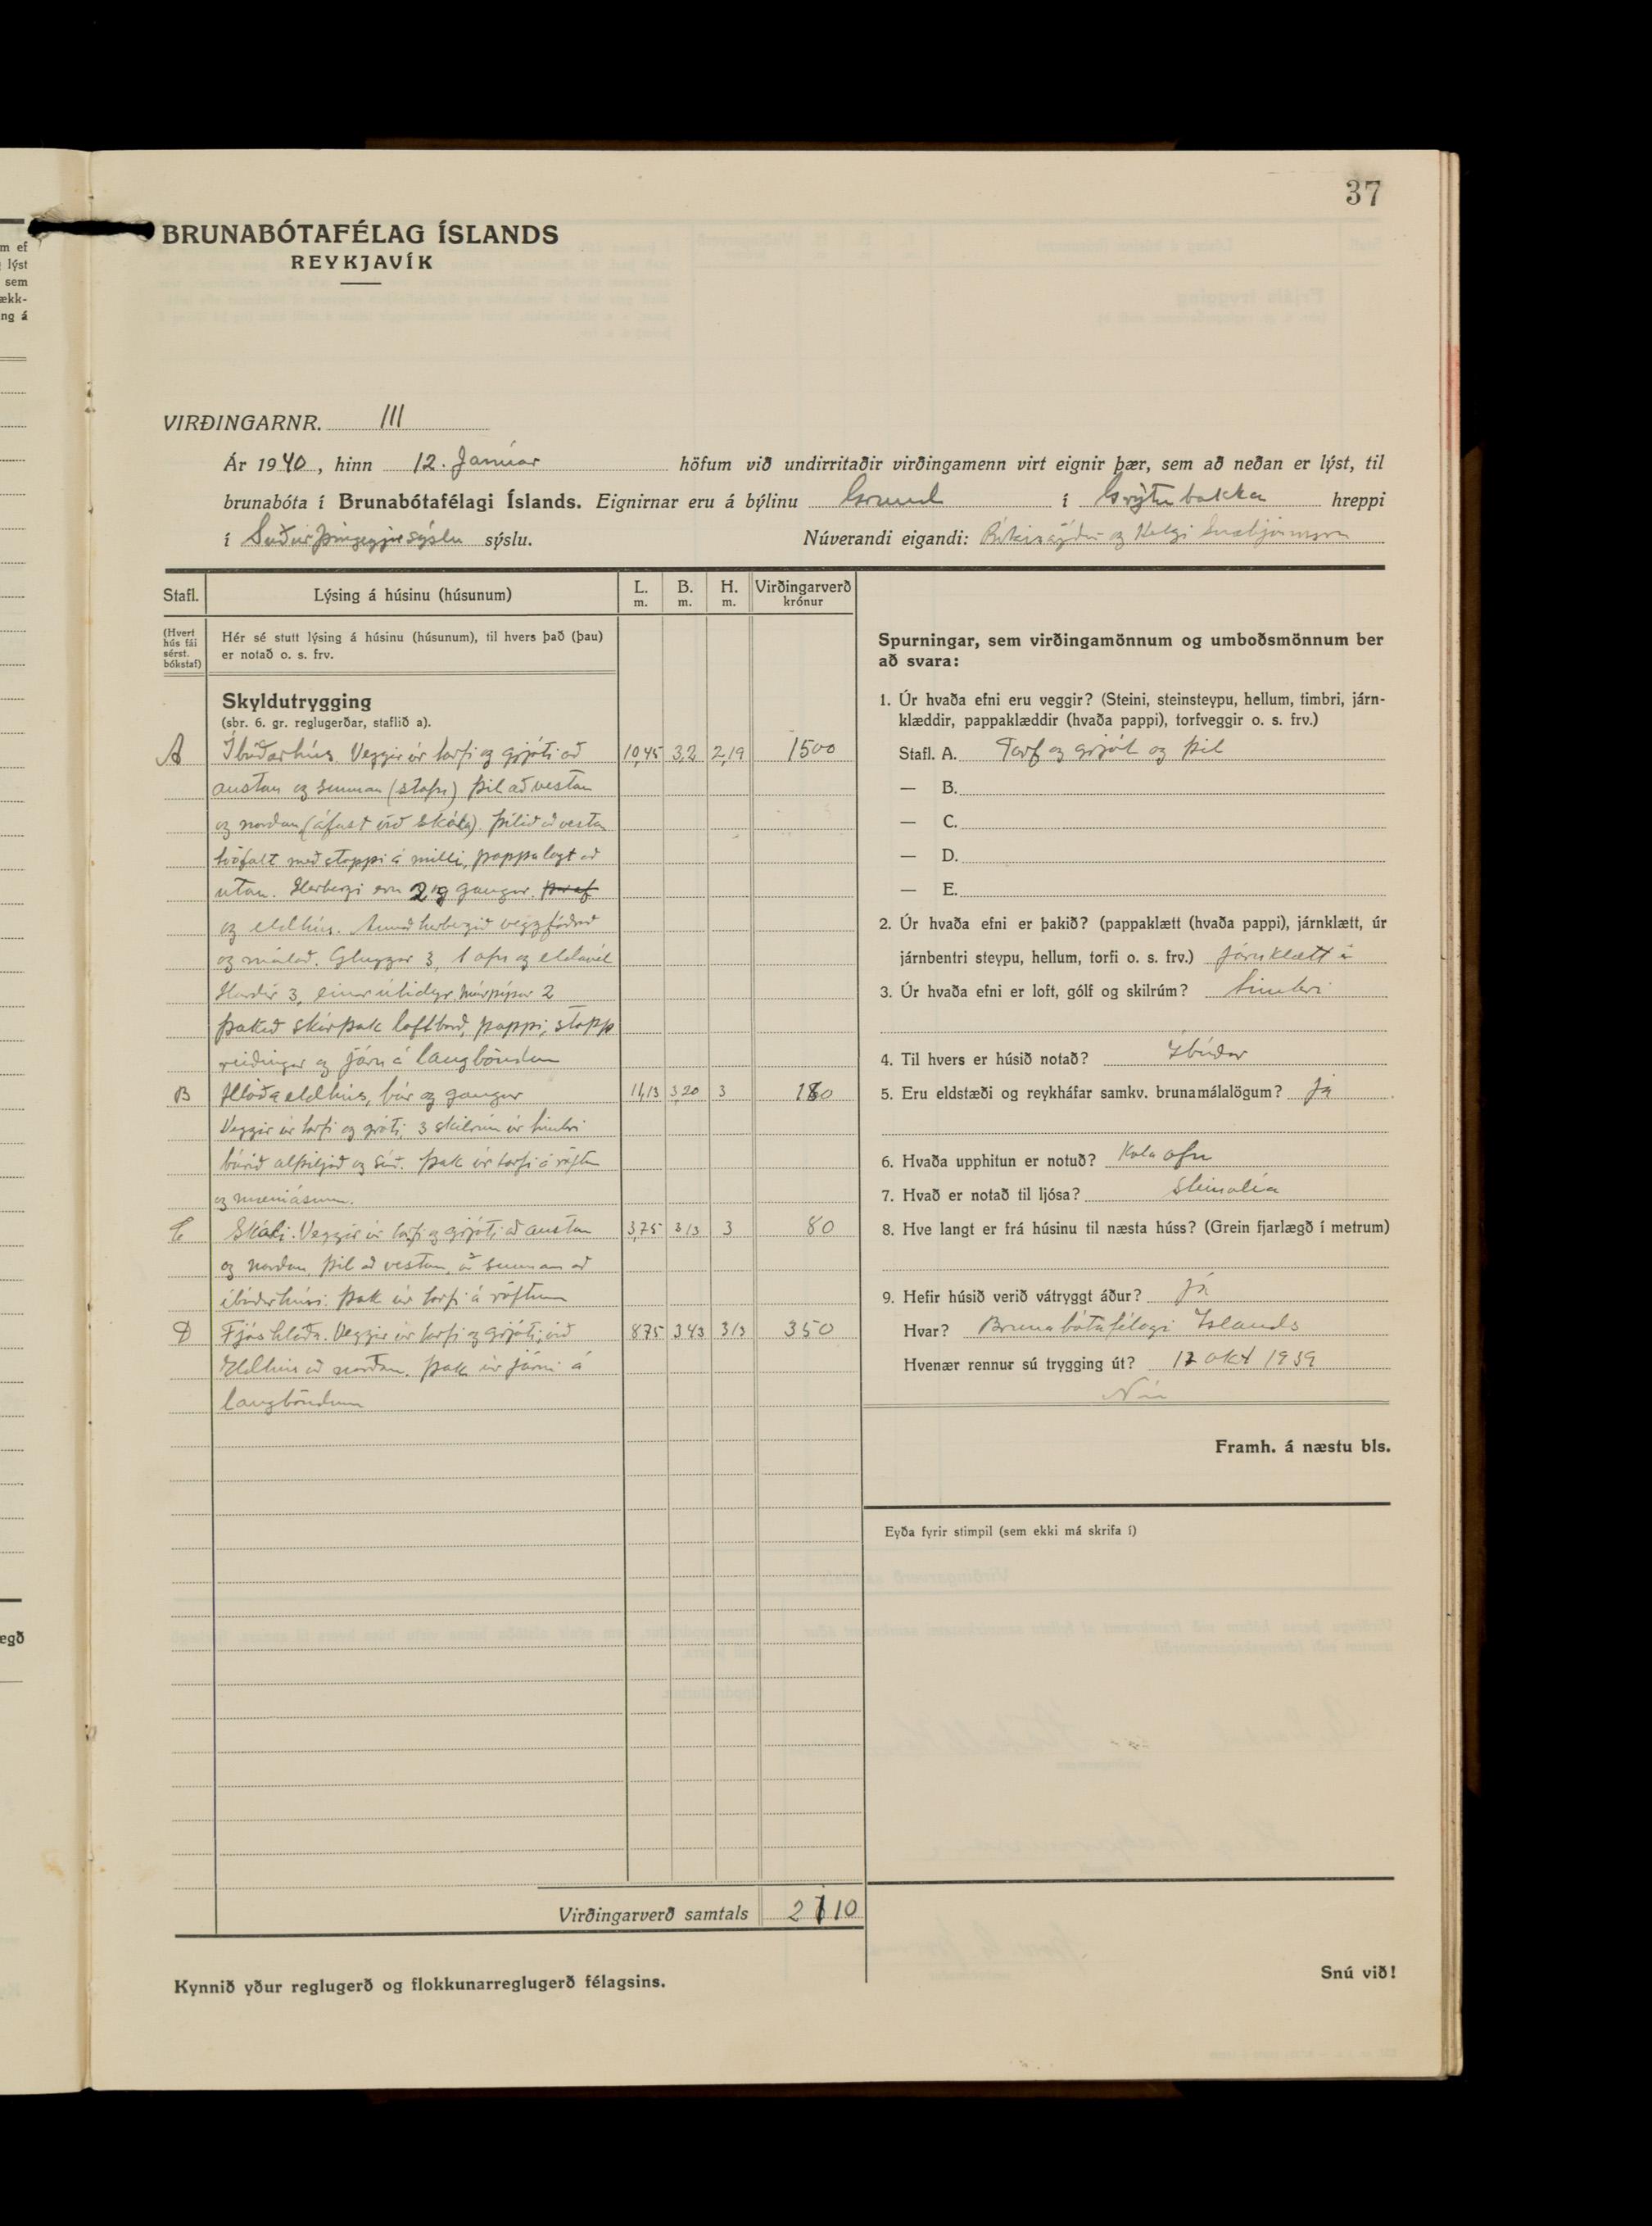 37
BRUNABÓTAFÉLAG ÍSLANDS
REYKJAVÍK
VIRÐINGARNR. III
Ár 1940, hinn 12. Janúar höfum við undirritaðir virðingamenn virt eignir þær, sem að neðan er lýst, til
brunabóta í Brunabótafélagi Íslands. Eignirnar eru á býlinu Grund í Grýtubakka hreppi
í Suður þingeyjarsýslu sýslu. Núverandi eigandi: og Helgi Snæbjörnsson
Stafl. Lýsing á húsinu (húsunum) L. m. B. m. H. m. Virðingarverð krónur
(Hvert hús fái sérst. bókstaf)
Hér sé stutt lýsing á húsinu (húsunum), til hvers það (þau)
er notað o. s. frv.
Skyldutrygging
(sbr. 6. gr. reglugerðar, staflið a).
A Íbúðarhús. Veggir úr torfi og grjóti að 10,45 3,2 2,19 1500
austan og sunnan (stafn) Þil að vestan
og norðan (áfast við skála). Þilið að vestan
tvöfalt með stoppi á milli, pappalagt að
utan. Herbergi eru 2 og gangur.
og eldhús. Annað herbergið veggfóðrað
og málað. Gluggar 3, 1 ofn og eldavél
Hurðir 3, einar útidyr, múrpípur 2
Þakið skárþak loftborð, pappi, stopp
reiðingur og járn á langböndum
B Hlóðaeldhús, búr og gangur 11,13 3,20 3 180
Veggir úr torfi og gróti, 3 skilrúm úr timbri
búrið alþiljað og súð. Þak úr torfi á röftum
og mæniásum.
C Skáli. Veggir úr torfi og grjóti að austan 3,75 313 3 80
og norðan, þil að vestan, að sunnan að
íbúðarhúsi. Þak úr torfi á röftum
D Fjóshlaða. Veggir úr torfi og grjóti, við 875 343 313 350
Eldhús að norðan. Þak úr járni á
langböndum
Virðingarverð samtals 2110
Kynnið yður reglugerð og flokkunarreglugerð félagsins.
Spurningar, sem virðingamönnum og umboðsmönnum ber
að svara:
1. Úr hvaða efni eru veggir? (Steini, steinsteypu, hellum, timbri, járn-
klæddir, pappaklæddir (hvaða pappi), torfveggir o. s. frv.)
Stafl. A. Torf og grjót og þil
— B.
— C.
— D.
— E.
2. Úr hvaða efni er þakið? (pappaklætt (hvaða pappi), járnklætt, úr
járnbentri steypu, hellum, torfi o. s. frv.) Járnklætt á
3. Úr hvaða efni er loft, gólf og skilrúm? timbri
4. Til hvers er húsið notað? Íbúðar
5. Eru eldstæði og reykháfar samkv. brunamálalögum? Já
6. Hvaða upphitun er notuð? Kola ofn
7. Hvað er notað til ljósa? Steinolía
8. Hve langt er frá húsinu til næsta húss? (Grein fjarlægð í metrum)
9. Hefir húsið verið vátryggt áður? Já
Hvar? Brunabótafélagi Íslands
Hvenær rennur sú trygging út? 12 okt 1939
Framh. á næstu bls.
Eyða fyrir stimpil (sem ekki má skrifa í)
Snú við!